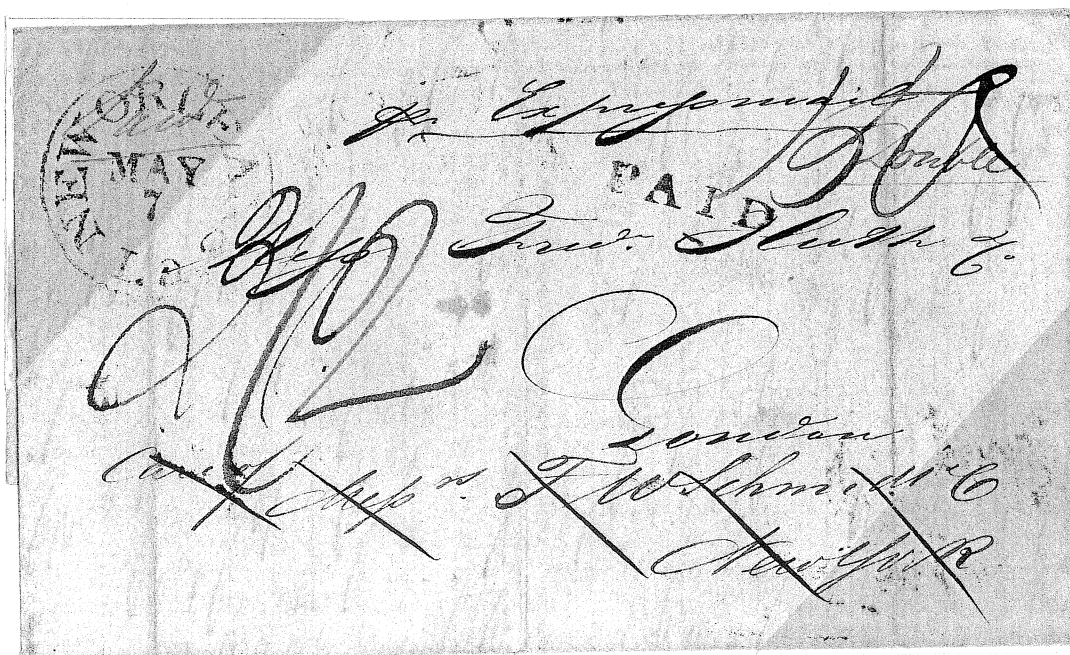 NEW ORLEANS
MAY
7
LA
pr Expressmail
Double
PAID
Mess Fred. Huth & C.
London
Care of Mess rs F W Schmidt & C
New York